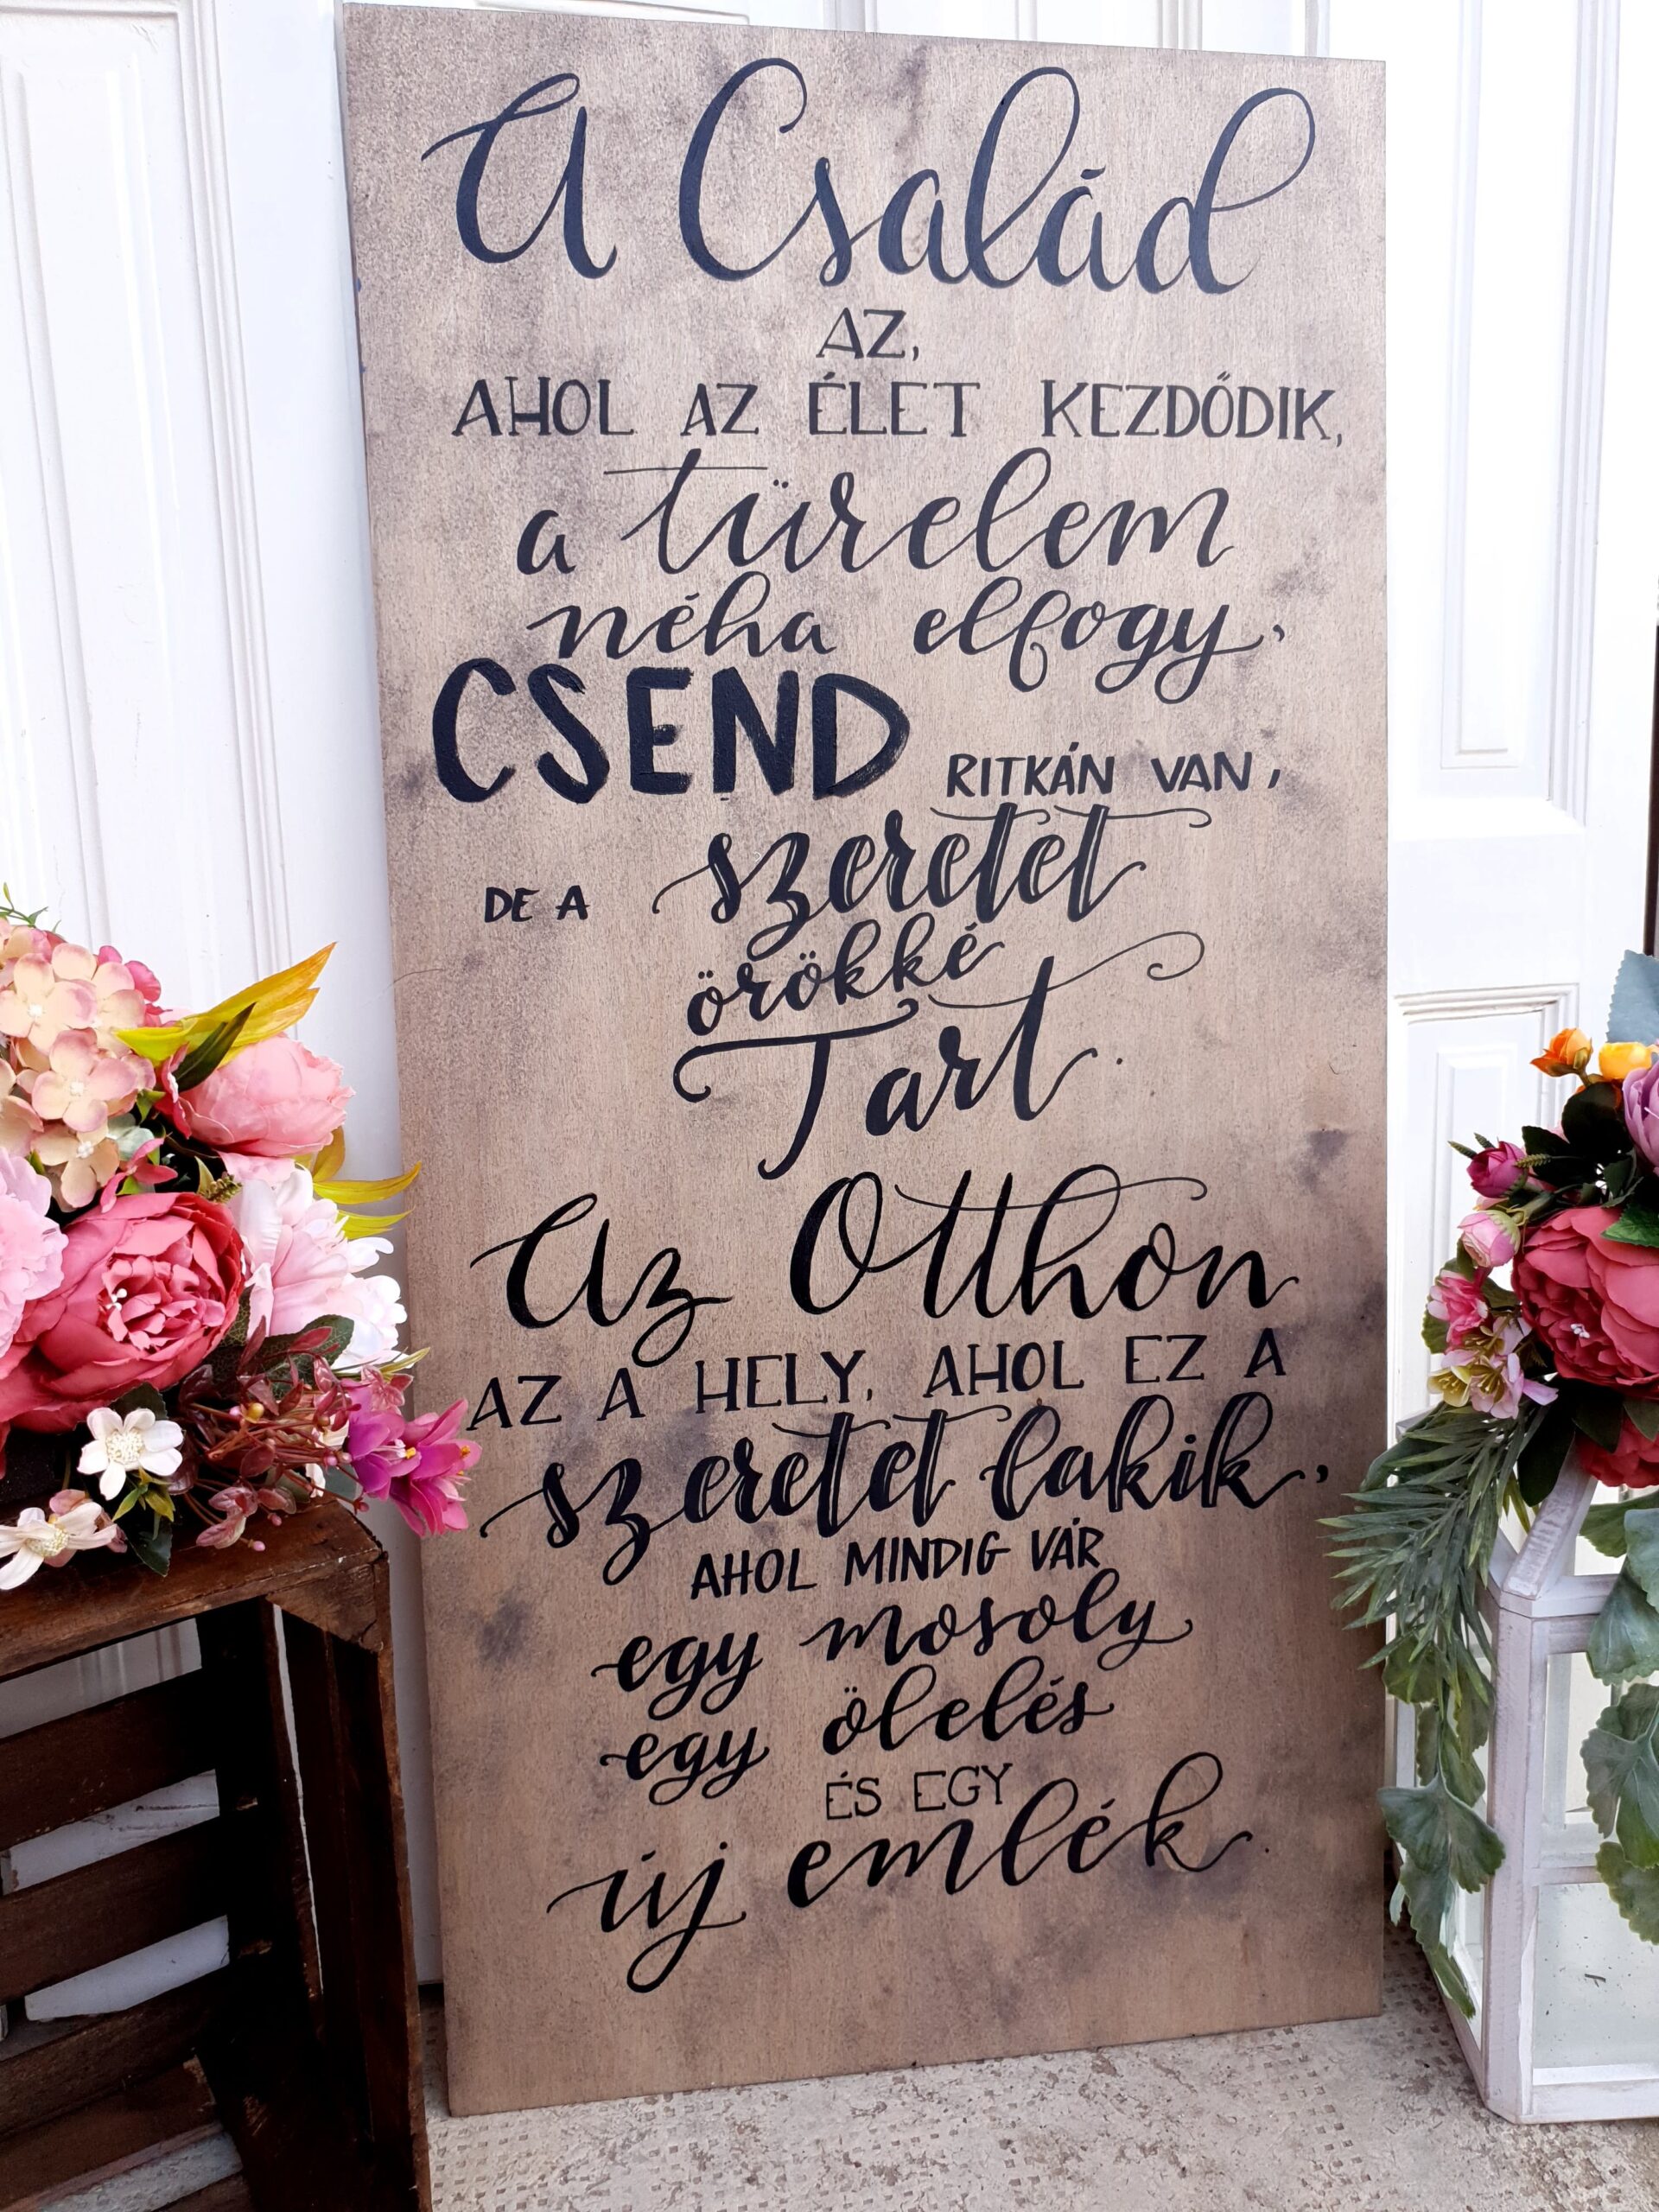 A Család
AZ,
AHOL AZ ÉLET KEZDŐDIK,
a türelem
néha elfogy,
CSEND RITKÁN VAN,
DE A szeretet
örökké
Tart.
Az Otthon
AZ A HELY, AHOL EZ A
szeretet lakik,
AHOL MINDIG VÁR
egy mosoly
egy ölelés
ÉS EGY
új emlék.